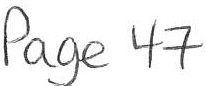 Page 47